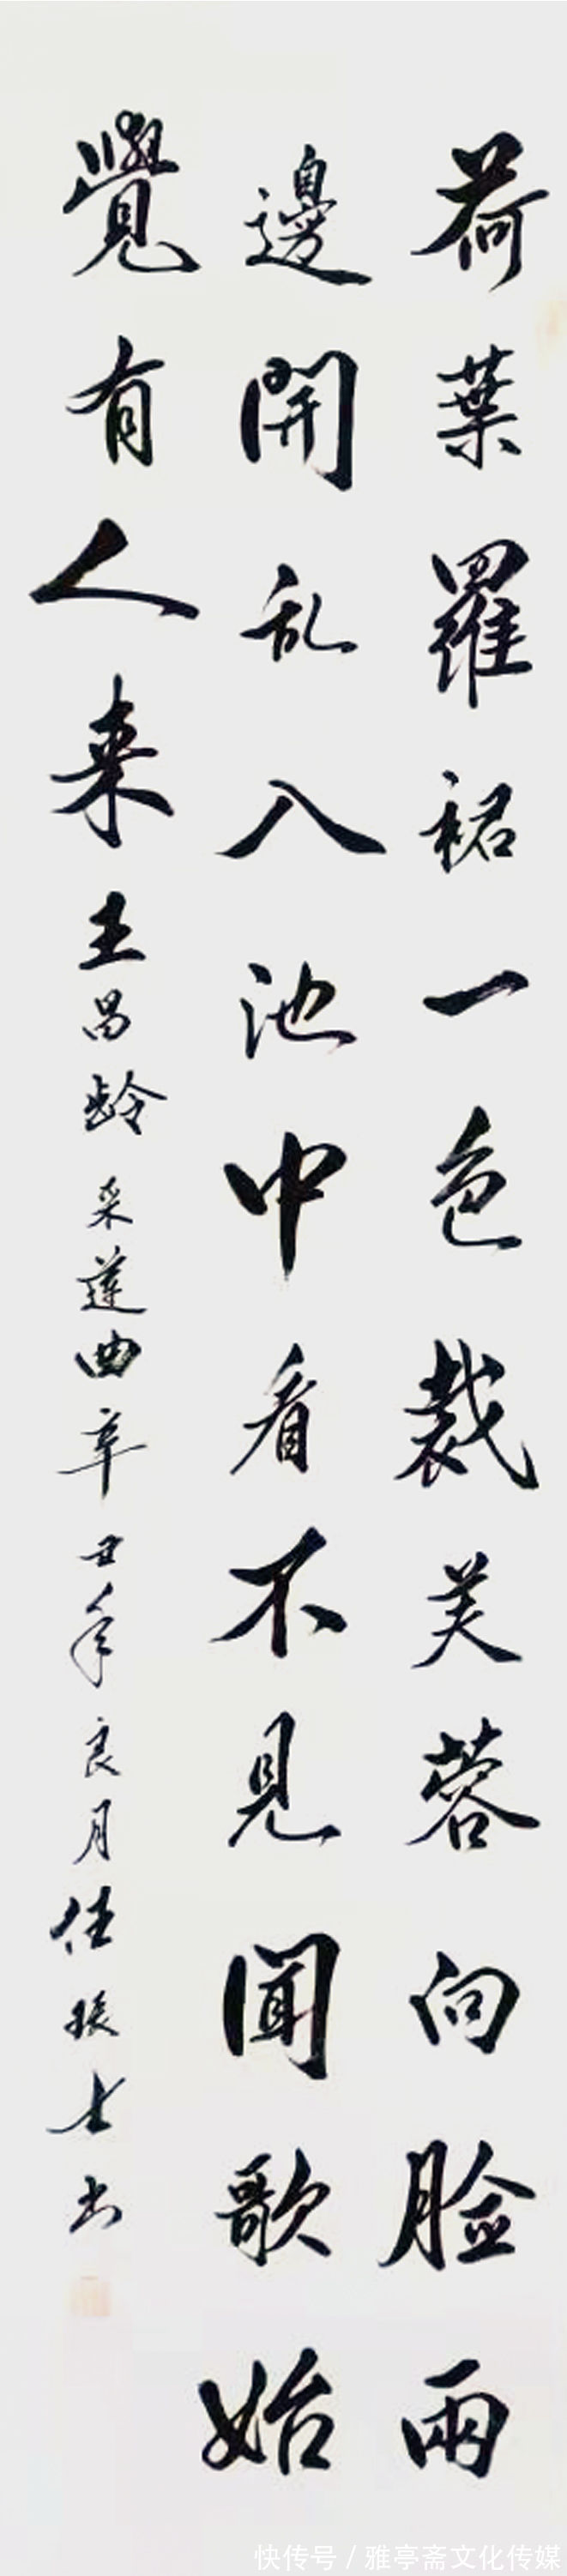 荷葉羅裙一色裁芙蓉向脸兩
邊開乱入池中看不見聞歌始
覺有人来王昌龄采莲曲辛丑年良月任振士书
快传号/雅亭斋文化传媒